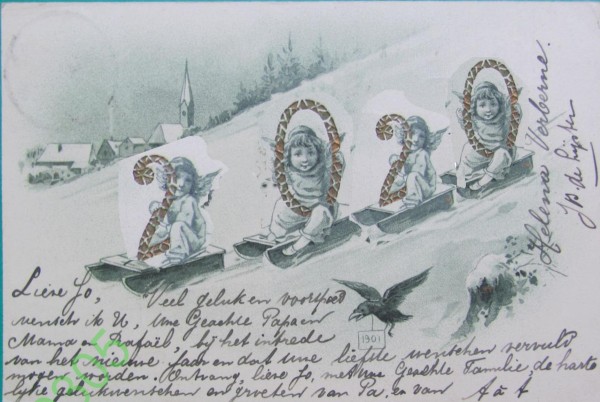 2020
Helena Verberne.
Lieve Jo, Veel geluk en voorspoed
wensch ik U, Uwe Geachte Papa en
Mama en Rafaël, bij het intrede
van het nieuwe jaar en dat uwe liefste wenschen vervuld
mogen worden. Ontvang, lieve Jo, met uwe Geachte Familie, de harte
lijke gelukwenschen en groeten van Pa, en van
1901
205